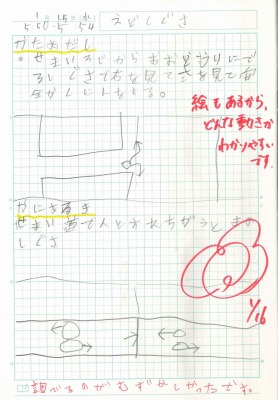 1/15(水)
えどしぐさ
かためだし
・せまいろじからおおどおりにで
るしぐさ 右を見て左を見て
絵もあるから、
どんな動きか
わかりやすい
です。
かにあるき
せまい道で人とすれちがうときの
しぐさ
1/16
調べるのがむずかしかったです。